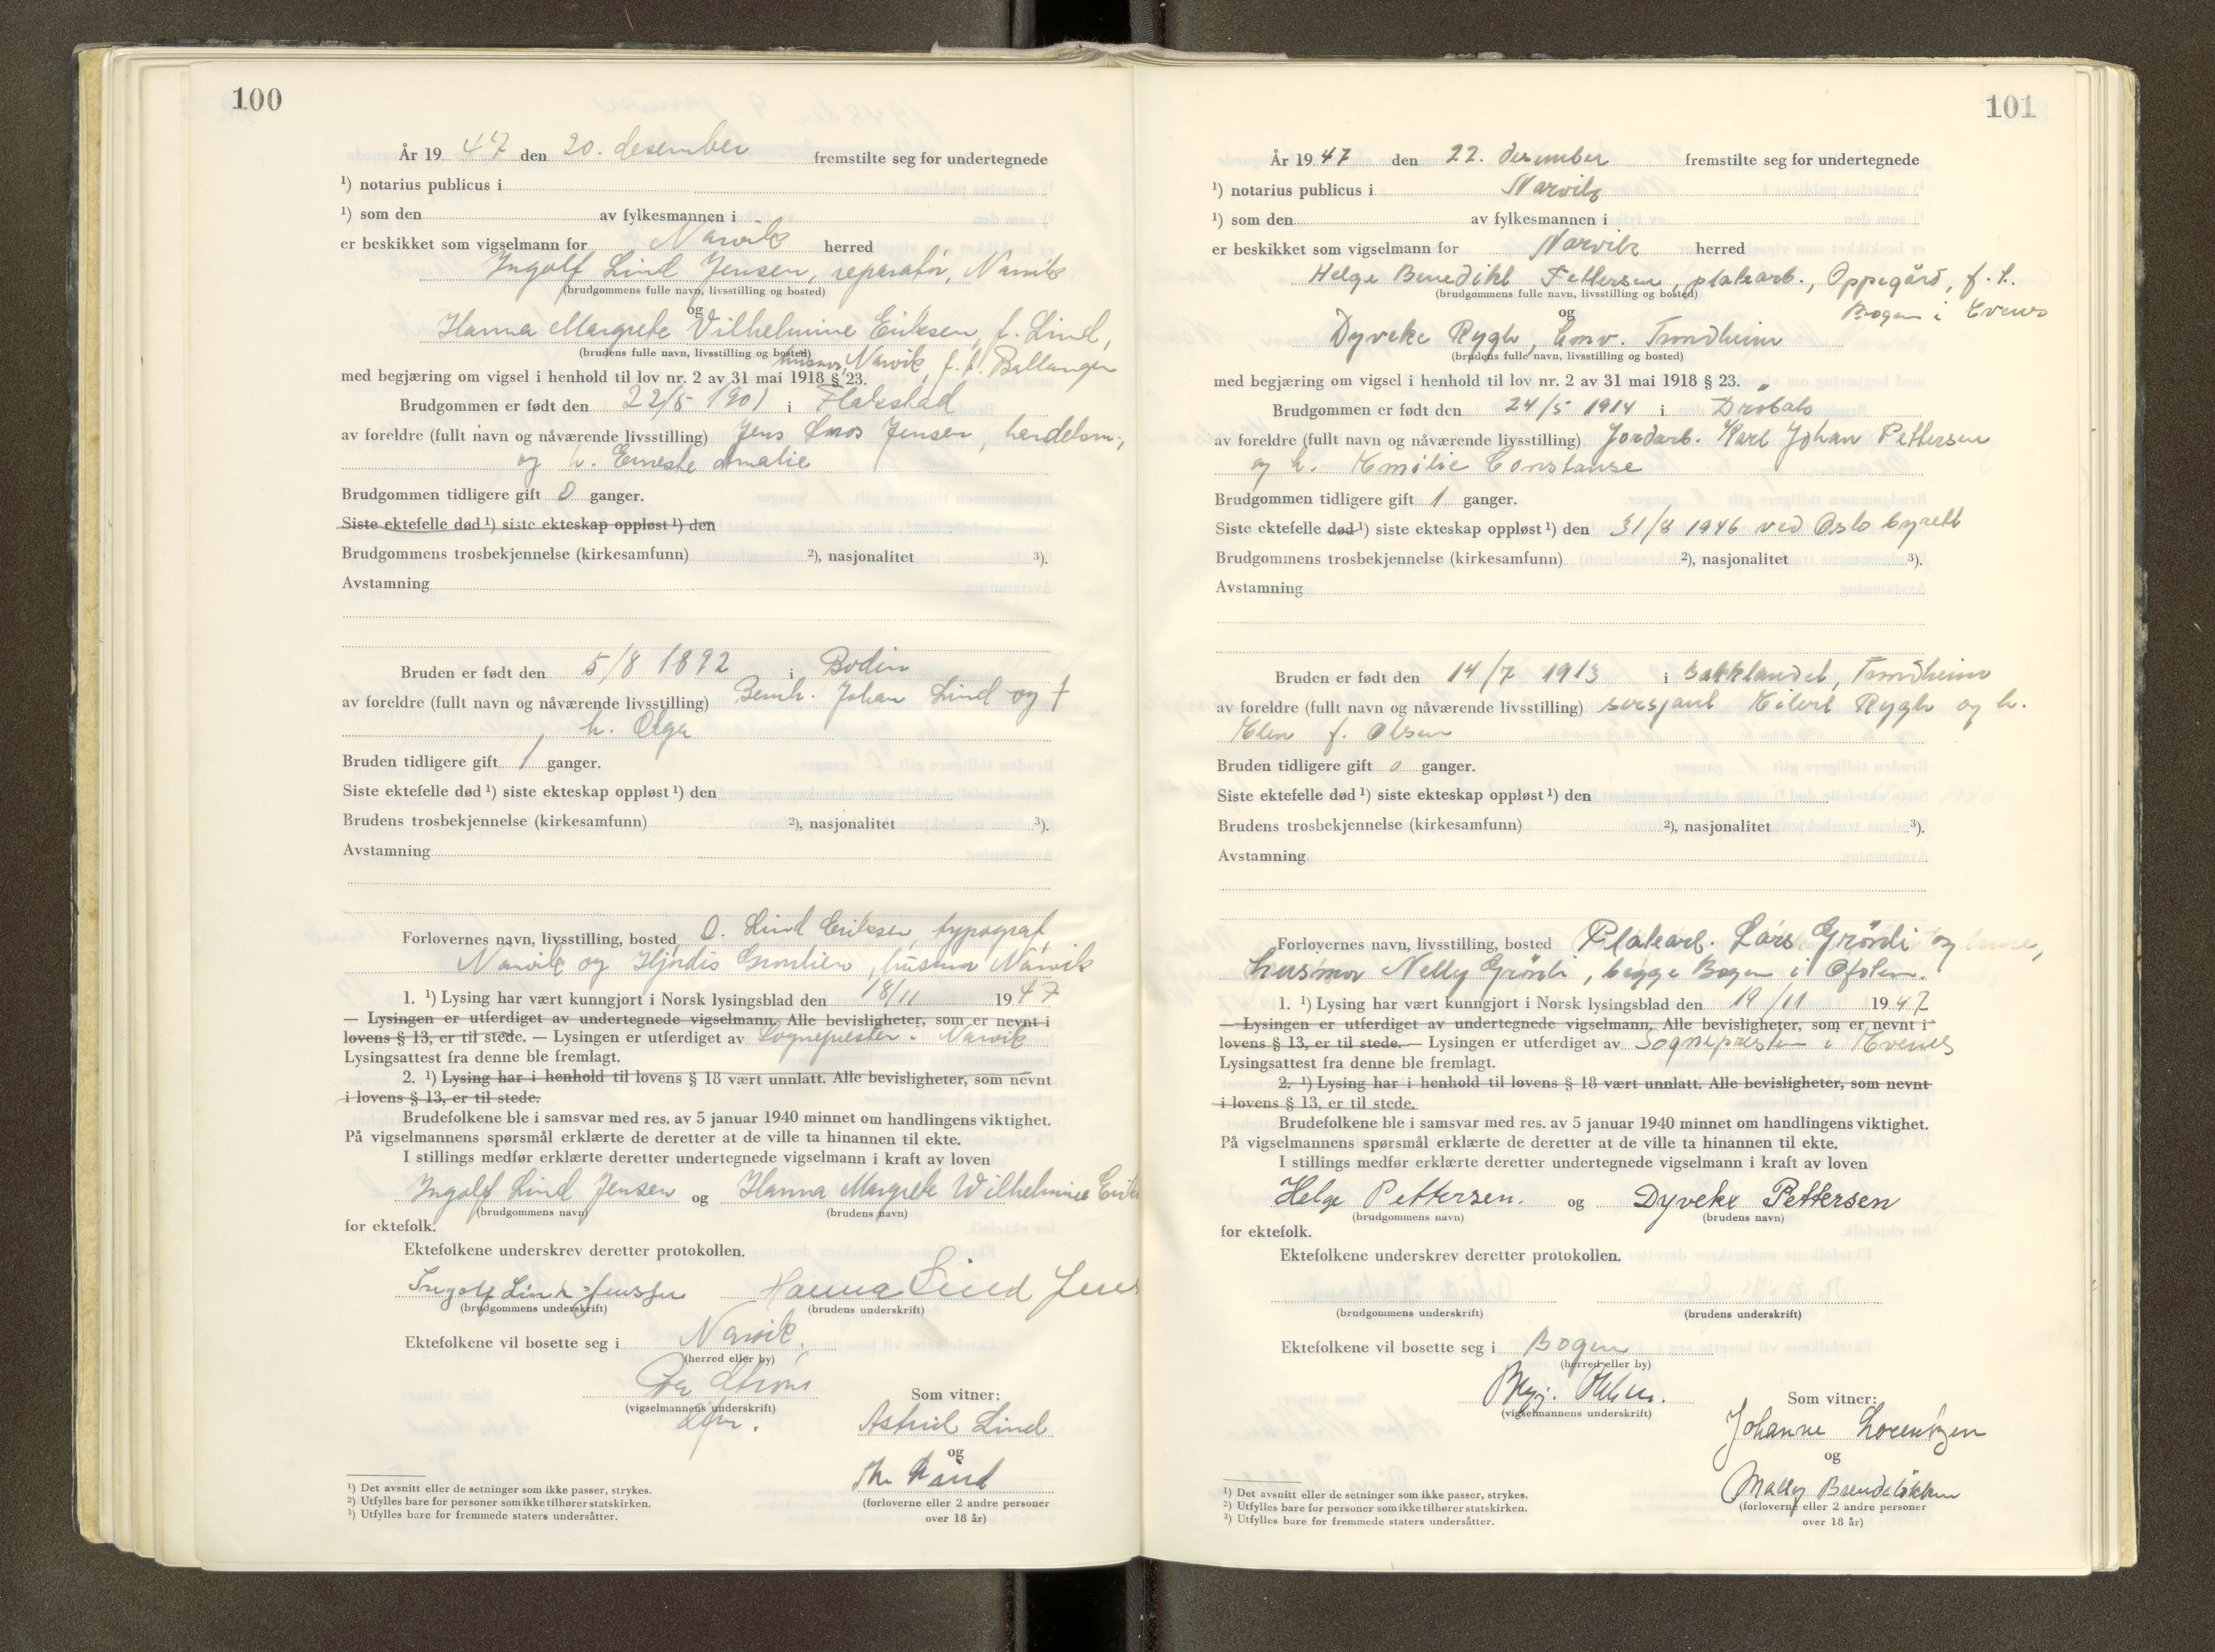 100
År 19 47 den 20. desember fremstilte seg for undertegnede
¹) notarius publicus i
¹) som den av fylkesmannen i
er beskikket som vigselmann for Narvik herred
Ingolf Lind Jensen, reparatør, Narvik
(brudgommens fulle navn, livsstilling og bosted)
og
Hanna Margrete Vilhelmine Eriksen, f. Lind,
(brudens fulle navn, livsstilling og bosted)
husmor, Narvik, f. t. Ballangen
med begjæring om vigsel i henhold til lov nr. 2 av 31 mai 1918 § 23.
Brudgommen er født den 22/5 1901 i Flakstad
av foreldre (fullt navn og nåværende livsstilling) Jens Jensen, handelsm.,
og h. Amalie
Brudgommen tidligere gift 0 ganger.
Siste ektefelle død¹) siste ekteskap oppløst¹) den
Brudgommens trosbekjennelse (kirkesamfunn) ²), nasjonalitet ³).
Avstamning
Bruden er født den 5/8 1892 i Bodin
av foreldre (fullt navn og nåværende livsstilling) Bernh. Johan Lind og †
h. Olga
Bruden tidligere gift 1 ganger.
Siste ektefelle død¹) siste ekteskap oppløst¹) den
Brudens trosbekjennelse (kirkesamfunn) ²), nasjonalitet ³).
Avstamning
Forlovernes navn, livsstilling, bosted O. Lind Eriksen, typograf,
Narvik og Hjørdis husmor Narvik
1. ¹) Lysing har vært kunngjort i Norsk lysingsblad den 18/11 19 47
— Lysingen er utferdiget av undertegnede vigselmann. Alle bevisligheter, som er nevnt i
lovens § 13, er til stede. — Lysingen er utferdiget av Sognepresten i Narvik
Lysingsattest fra denne ble fremlagt.
2. ¹) Lysing har i henhold til lovens § 18 vært unnlatt. Alle bevisligheter, som nevnt
i lovens § 13, er til stede.
Brudefolkene ble i samsvar med res. av 5 januar 1940 minnet om handlingens viktighet.
På vigselmannens spørsmål erklærte de deretter at de ville ta hinannen til ekte.
I stillings medfør erklærte deretter undertegnede vigselmann i kraft av loven
Ingolf Lind Jensen og Hanna Margrete Wilhelmine
(brudgommens navn) (brudens navn)
for ektefolk.
Ektefolkene underskrev deretter protokollen.
Ingolf Lind Jensen Hanna Lind
(brudgommens underskrift) (brudens underskrift)
Ektefolkene vil bosette seg i Narvik.
(herred eller by)
(vigselmannens underskrift)
Som vitner:
Astrid Lind
og
(forloverne eller 2 andre personer
over 18 år)
¹) Det avsnitt eller de setninger som ikke passer, strykes.
²) Utfylles bare for personer som ikke tilhører statskirken.
³) Utfylles bare for fremmede staters undersåtter.
101
År 19 47 den 22. desember fremstilte seg for undertegnede
¹) notarius publicus i Narvik
¹) som den av fylkesmannen i
er beskikket som vigselmann for Narvik herred
Helge Benedikt Pettersen, platearb., Oppegård, f. t.
(brudgommens fulle navn, livsstilling og bosted)
Bogen i Evenes
og
Dyveke Rygh, Trondheim
(brudens fulle navn, livsstilling og bosted)
med begjæring om vigsel i henhold til lov nr. 2 av 31 mai 1918 § 23.
Brudgommen er født den 24/5 1914 i Drøbak
av foreldre (fullt navn og nåværende livsstilling) Jordarb. Karl Johan Pettersen
og h. Emilie Constanse
Brudgommen tidligere gift 1 ganger.
Siste ektefelle død¹) siste ekteskap oppløst¹) den 31/8 1946 ved Oslo byrett
Brudgommens trosbekjennelse (kirkesamfunn) ²), nasjonalitet ³).
Avstamning
Bruden er født den 14/7 1913 i Bakklandet, Trondheim
av foreldre (fullt navn og nåværende livsstilling) sersjant Eilert Rygh og h.
Elen f. Olsen
Bruden tidligere gift 0 ganger.
Siste ektefelle død¹) siste ekteskap oppløst¹) den
Brudens trosbekjennelse (kirkesamfunn) ²), nasjonalitet ³).
Avstamning
Forlovernes navn, livsstilling, bosted Platearb. Lars Grøndi og
husmor Nelly Grøndi, begge Bogen i Ofoten.
1. ¹) Lysing har vært kunngjort i Norsk lysingsblad den 19/11 19 47
— Lysingen er utferdiget av undertegnede vigselmann. Alle bevisligheter, som er nevnt i
lovens § 13, er til stede. — Lysingen er utferdiget av Sognepresten i Evenes
Lysingsattest fra denne ble fremlagt.
2. ¹) Lysing har i henhold til lovens § 18 vært unnlatt. Alle bevisligheter, som nevnt
i lovens § 13, er til stede.
Brudefolkene ble i samsvar med res. av 5 januar 1940 minnet om handlingens viktighet.
På vigselmannens spørsmål erklærte de deretter at de ville ta hinannen til ekte.
I stillings medfør erklærte deretter undertegnede vigselmann i kraft av loven
Helge Pettersen. og Dyveke Pettersen
(brudgommens navn) (brudens navn)
for ektefolk.
Ektefolkene underskrev deretter protokollen.
(brudgommens underskrift) (brudens underskrift)
Ektefolkene vil bosette seg i Bogen
(herred eller by)
(vigselmannens underskrift)
Som vitner:
Johanne Lorentzen
og
(forloverne eller 2 andre personer
over 18 år)
¹) Det avsnitt eller de setninger som ikke passer, strykes.
²) Utfylles bare for personer som ikke tilhører statskirken.
³) Utfylles bare for fremmede staters undersåtter.